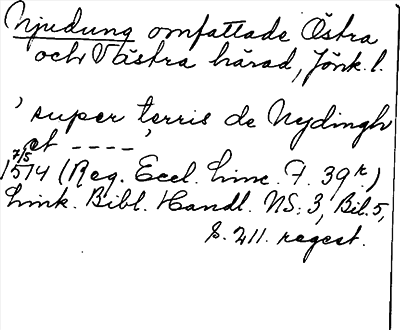 Njudung omfattade Östra
och Västra härad, Jönk. l.
'super terris de Nydingh
et ----'
7/5
1514 (Reg. Eccl. Linc. F. 39r.)
Link. Bibl. Handl. NS: 3, Bil. 5,
s. 211. regest.